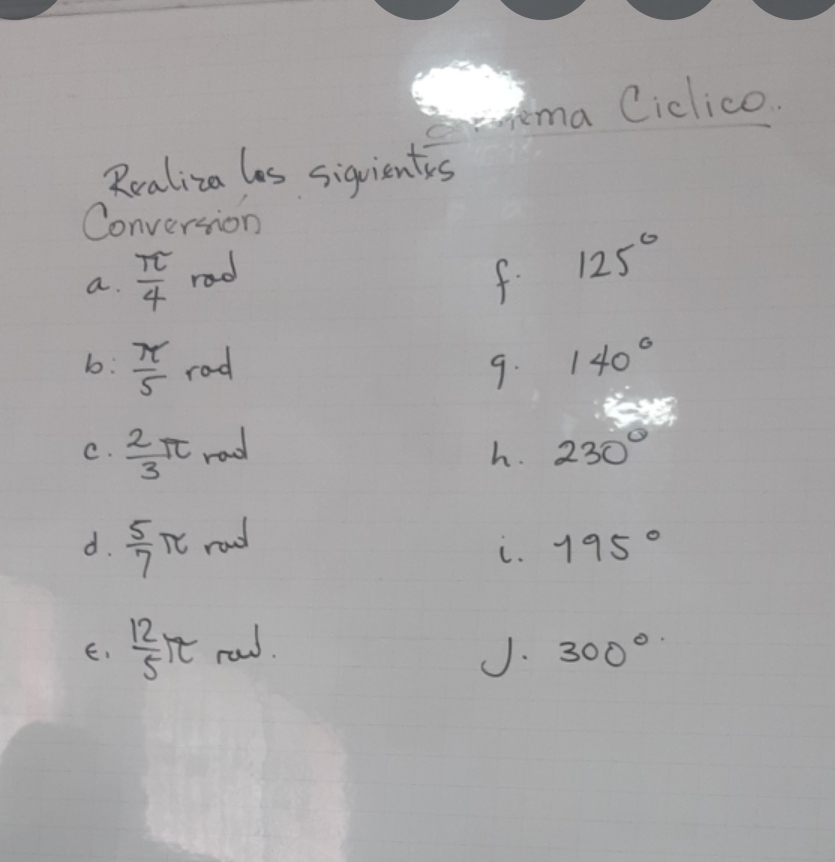 Ciclico.
Realiza los siguientes
Conversión
a. π/4 rad
b: π/5 rad
c. 2/3 π rad
d. 5/7 π rad
e. 12/5 π rad.
f. 125°
g. 140°
h. 230°
i. 195°
J. 300°